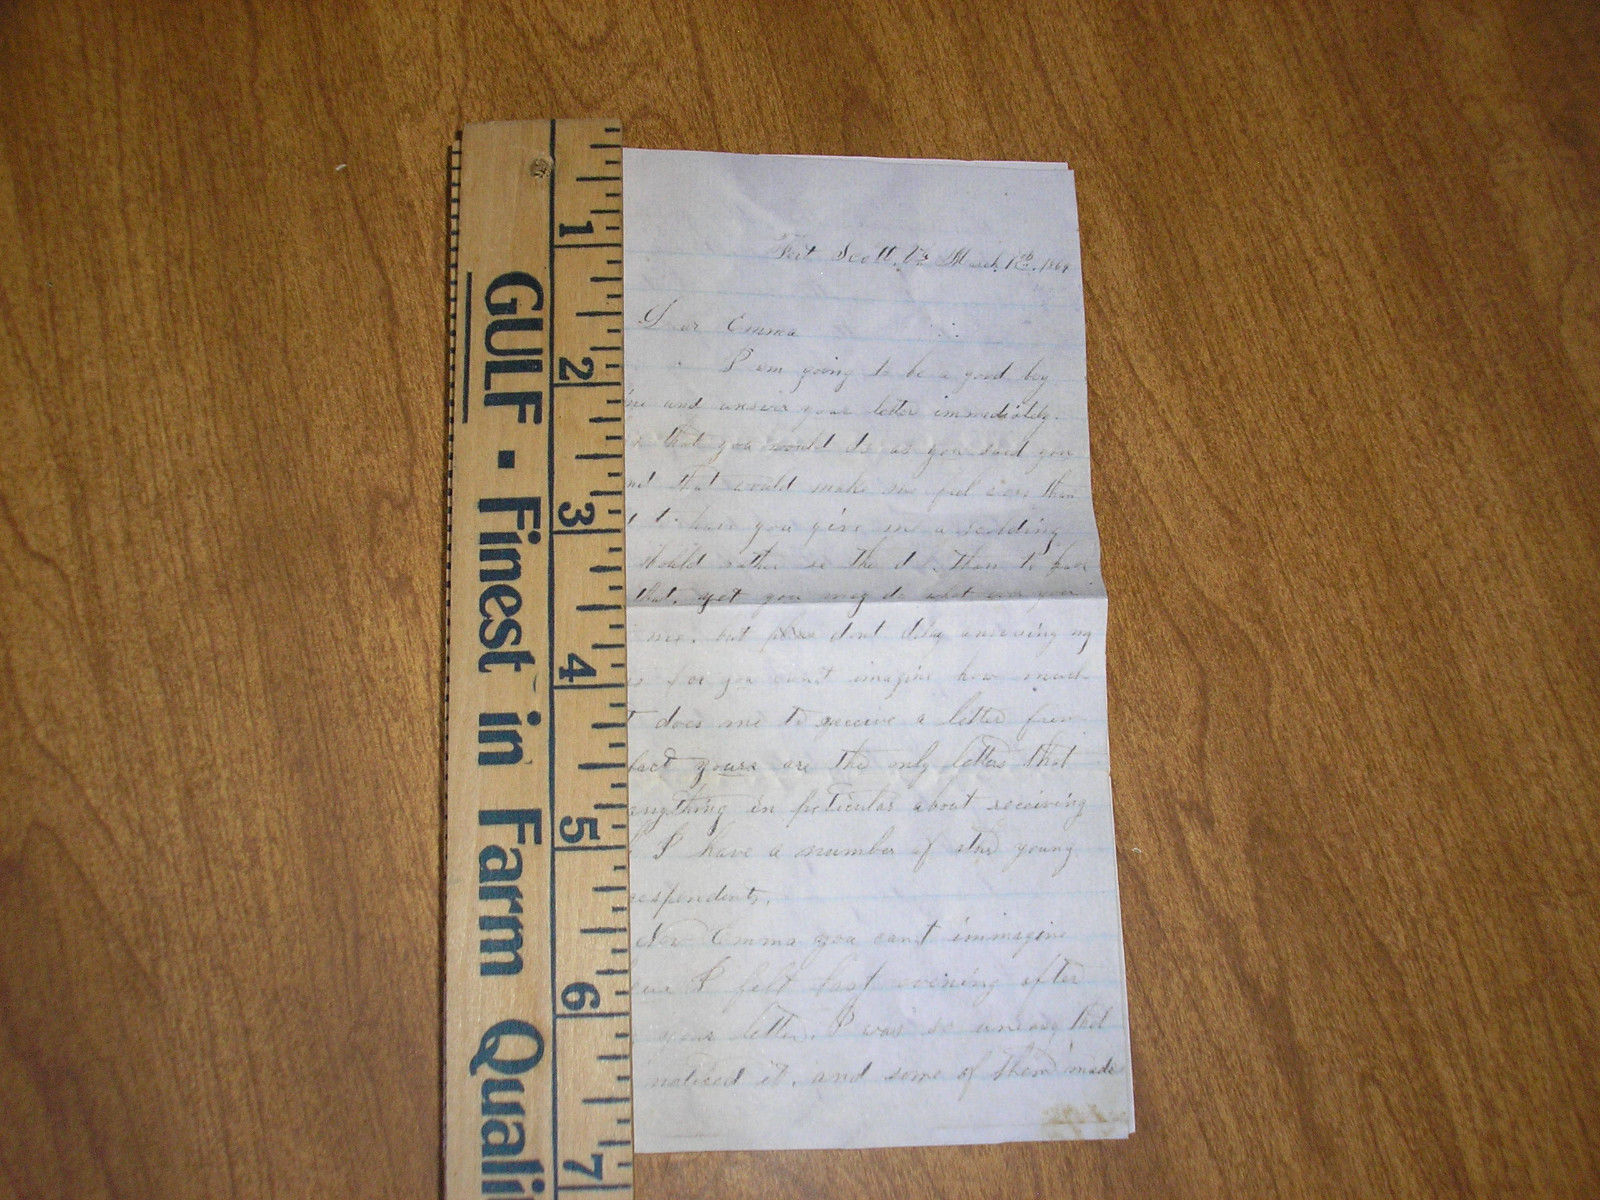 1
2
3
4
5
6
7
GULF - Finest in Farm Quali
Fort Scott, Va March 1864
Dear Emma
I am going to be a good boy
and answer your letter immediately.
that you would do as you said you
that would make me feel than
have you give me a scolding
rather than to
that, yet you may do what ever you
but dont delay answering my
for you cant imagine how much
does me to receive a letter from
fact yours are the only letters that
anything in peticular about receiving
I have a number of young
respondents.
Now Emma you cant immagine
I felt last evening after
your letter. I was so uneasy that
noticed it, and some of them made